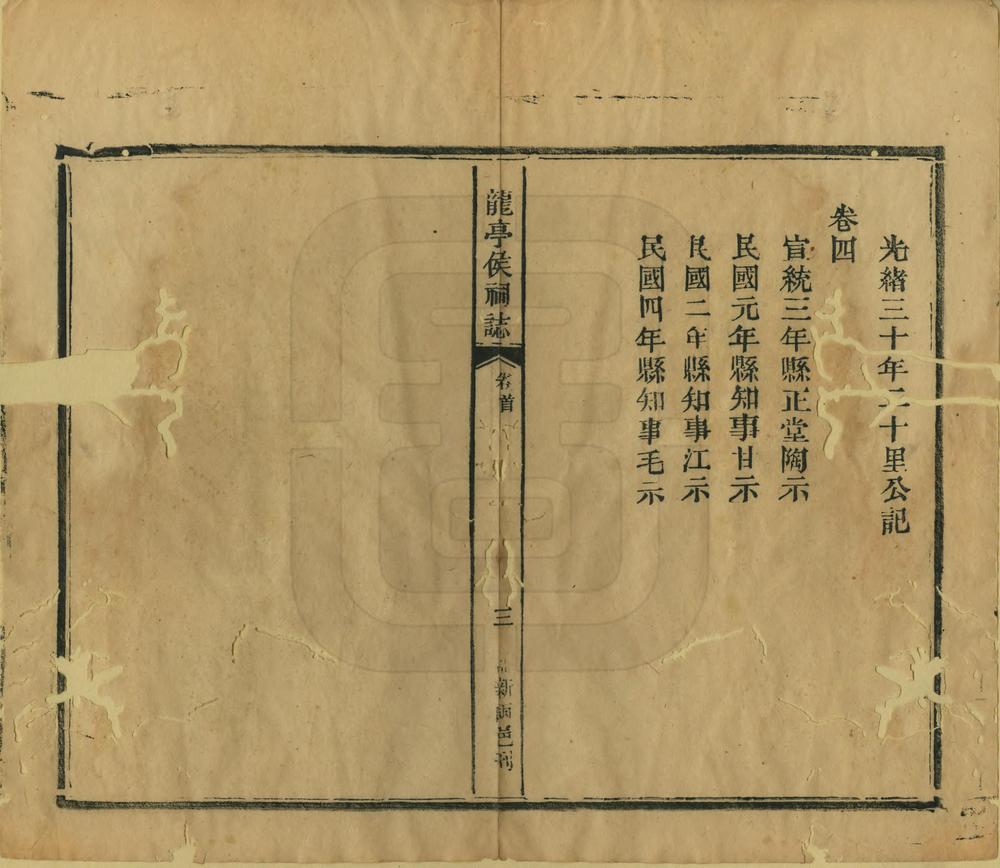 光緒三十年二十里公記
卷四
宣統三年縣正堂陶示
民國元年縣知事甘示
民國二年縣知事江示
民國四年縣知事毛示
龍亭侯祠誌
卷首
三
新
邑刊